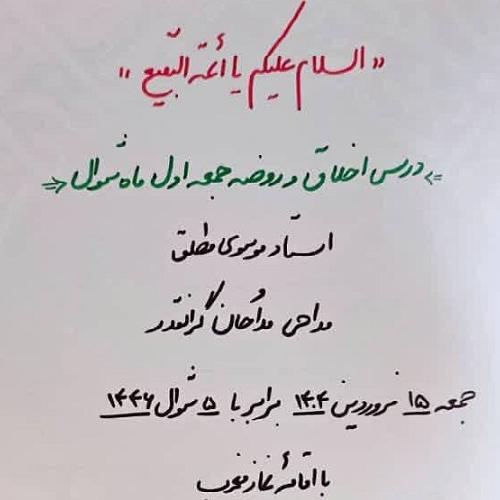 «السلام علیکم یا أئمة البقیع»
درس اخلاق و روضه جمعه اول ماه شوال
استاد موسوی مطلق
مداحی مداحان گرانقدر
جمعه ۱۵ فروردین ۱۴۰۴ برابر با ۵ شوال ۱۴۴۶
با اقامهٔ نماز مغرب